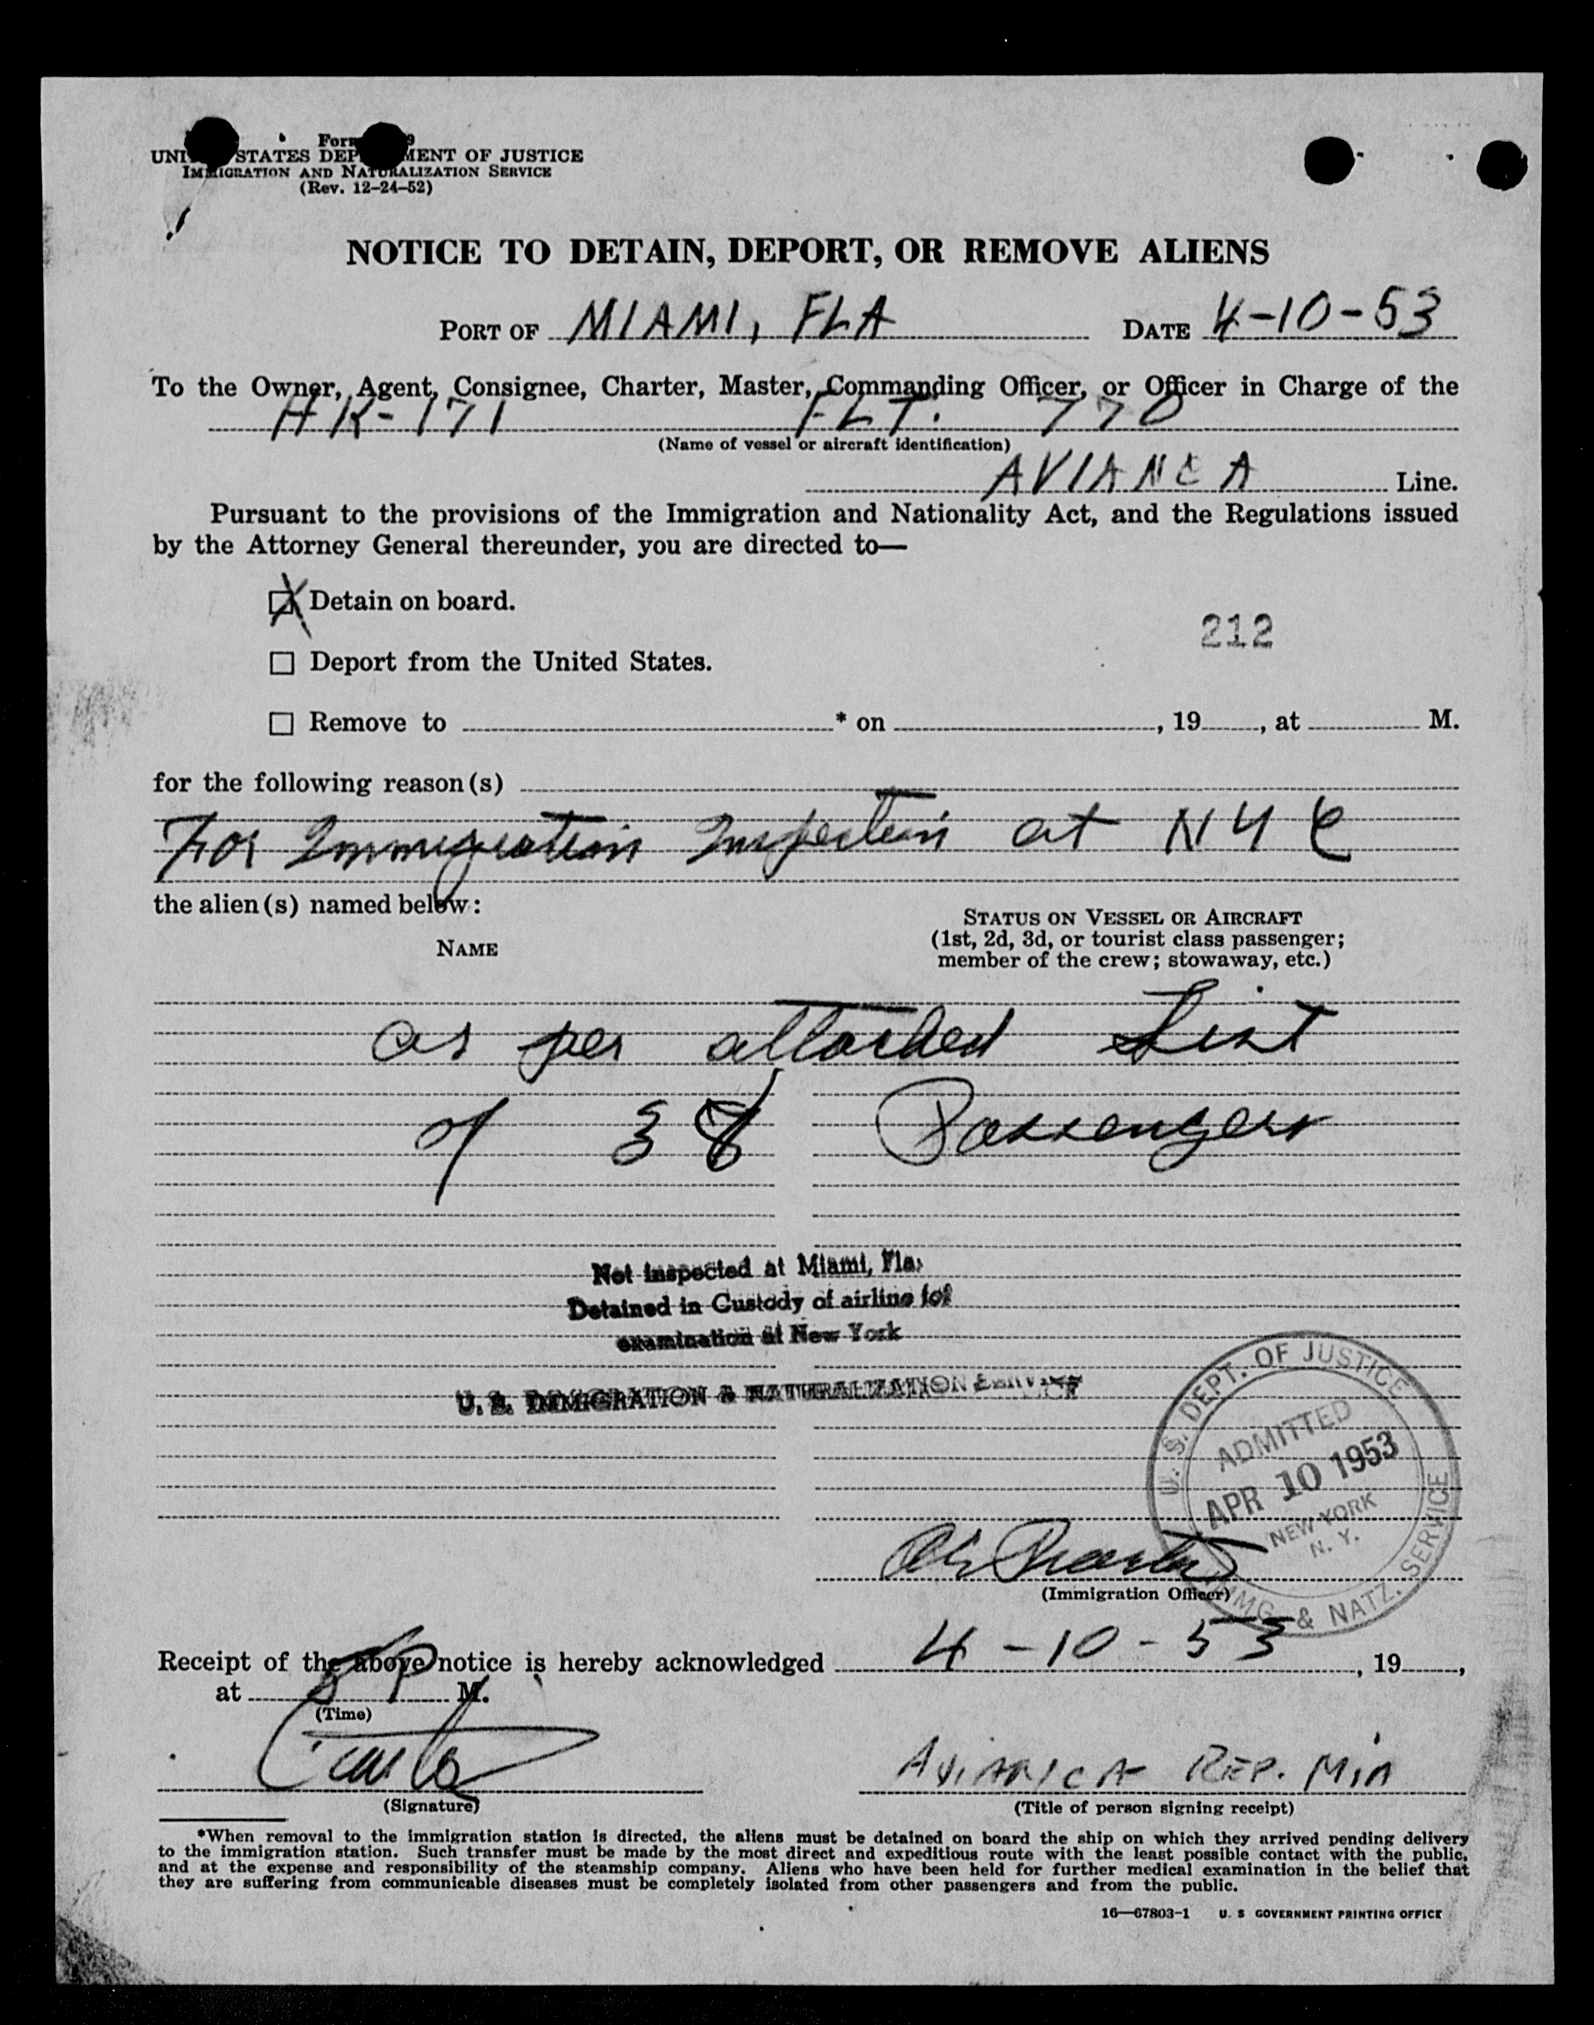 Form 9
UNITED STATES DEPARTMENT OF JUSTICE
IMMIGRATION AND NATURALIZATION SERVICE
(Rev. 12-24-52)
NOTICE TO DETAIN, DEPORT, OR REMOVE ALIENS
PORT OF MIAMI, FLA DATE 4-10-53
To the Owner, Agent, Consignee, Charter, Master, Commanding Officer, or Officer in Charge of the
HK-171 FLT. 770
(Name of vessel or aircraft identification)
AVIANCA Line.
Pursuant to the provisions of the Immigration and Nationality Act, and the Regulations issued
by the Attorney General thereunder, you are directed to—
X Detain on board.
212
Deport from the United States.
Remove to * on , 19 , at M.
for the following reason(s)
For Immigration Inspection at NYC
the alien(s) named below:
STATUS ON VESSEL OR AIRCRAFT
(1st, 2d, 3d, or tourist class passenger;
member of the crew; stowaway, etc.)
NAME
as per attached List
of 38 Passengers
Not inspected at Miami, Fla.
Detained in Custody of airline for
examination at New York
U. S. IMMIGRATION & NATURALIZATION SERVICE
U. S. DEPT. OF JUSTICE
ADMITTED
APR 10 1953
NEW YORK
N. Y.
IMMG. & NATZ. SERVICE
(Immigration Officer)
Receipt of the above notice is hereby acknowledged 4-10-53, 19 ,
at 8 P M.
(Time)
AVIANCA REP. MIA
(Signature) (Title of person signing receipt)
*When removal to the immigration station is directed, the aliens must be detained on board the ship on which they arrived pending delivery
to the immigration station. Such transfer must be made by the most direct and expeditious route with the least possible contact with the public,
and at the expense and responsibility of the steamship company. Aliens who have been held for further medical examination in the belief that
they are suffering from communicable diseases must be completely isolated from other passengers and from the public.
16—67803-1 U. S GOVERNMENT PRINTING OFFICE